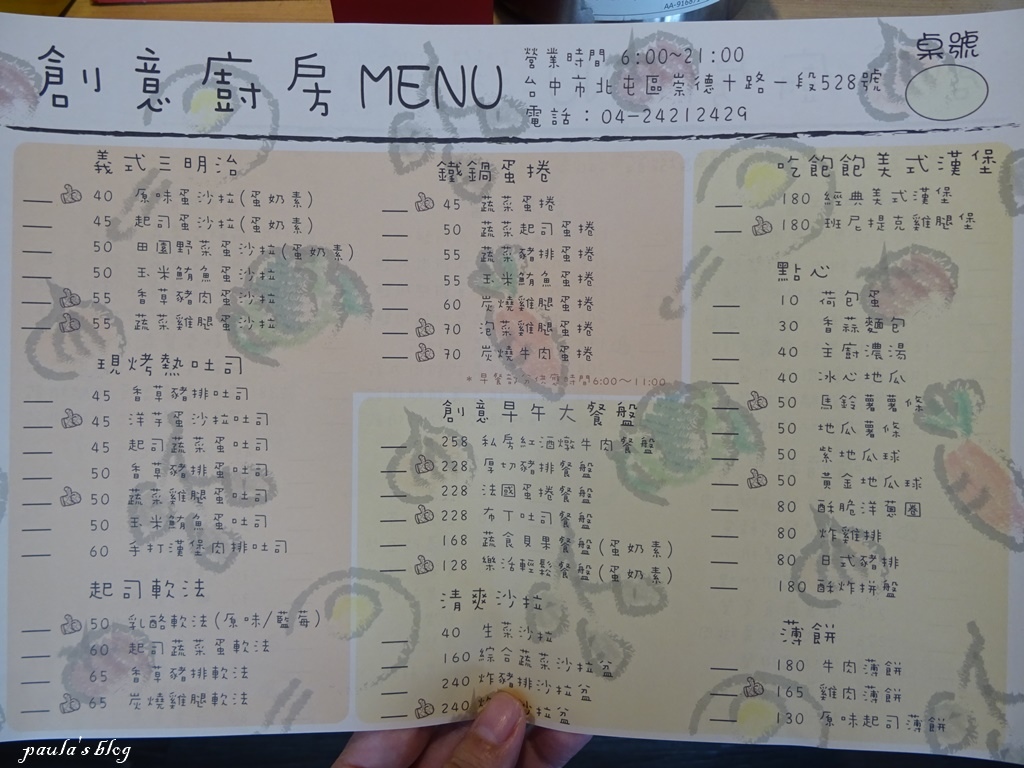 創意廚房 MENU
營業時間 6:00~21:00
台中市北屯區崇德十路一段528號
電話：04-24212429
桌號
義式三明治
40 原味蛋沙拉(蛋奶素)
45 起司蛋沙拉(蛋奶素)
50 田園野菜蛋沙拉(蛋奶素)
50 玉米鮪魚蛋沙拉
55 香草豬肉蛋沙拉
55 蔬菜雞腿蛋沙拉
現烤熱吐司
45 香草豬排吐司
45 洋芋蛋沙拉吐司
45 起司蔬菜蛋吐司
50 香草豬排蛋吐司
50 蔬菜雞腿蛋吐司
50 玉米鮪魚蛋吐司
60 手打漢堡肉排吐司
起司軟法
50 乳酪軟法(原味/藍莓)
60 起司蔬菜蛋軟法
65 香草豬排軟法
65 炭燒雞腿軟法
鐵鍋蛋捲
45 蔬菜蛋捲
50 蔬菜起司蛋捲
55 蔬菜豬排蛋捲
55 玉米鮪魚蛋捲
60 炭燒雞腿蛋捲
70 泡菜雞腿蛋捲
70 炭燒牛肉蛋捲
時間6:00~11:00
創意早午大餐盤
258 私房紅酒燉牛肉餐盤
228 厚切豬排餐盤
228 法國蛋捲餐盤
228 布丁吐司餐盤
168 蔬食貝果餐盤(蛋奶素)
128 樂活輕鬆餐盤(蛋奶素)
清爽沙拉
40 生菜沙拉
160 綜合蔬菜沙拉盆
240 炸豬排沙拉盆
240 沙拉盆
吃飽飽美式漢堡
180 經典美式漢堡
180 班尼提克雞腿堡
點心
10 荷包蛋
30 香蒜麵包
40 主廚濃湯
40 冰心地瓜
50 馬鈴薯薯條
50 地瓜薯條
50 紫地瓜球
50 黃金地瓜球
80 酥脆洋蔥圈
80 炸雞排
80 日式豬排
180 酥炸拼盤
薄餅
180 牛肉薄餅
165 雞肉薄餅
130 原味起司薄餅
paula's blog